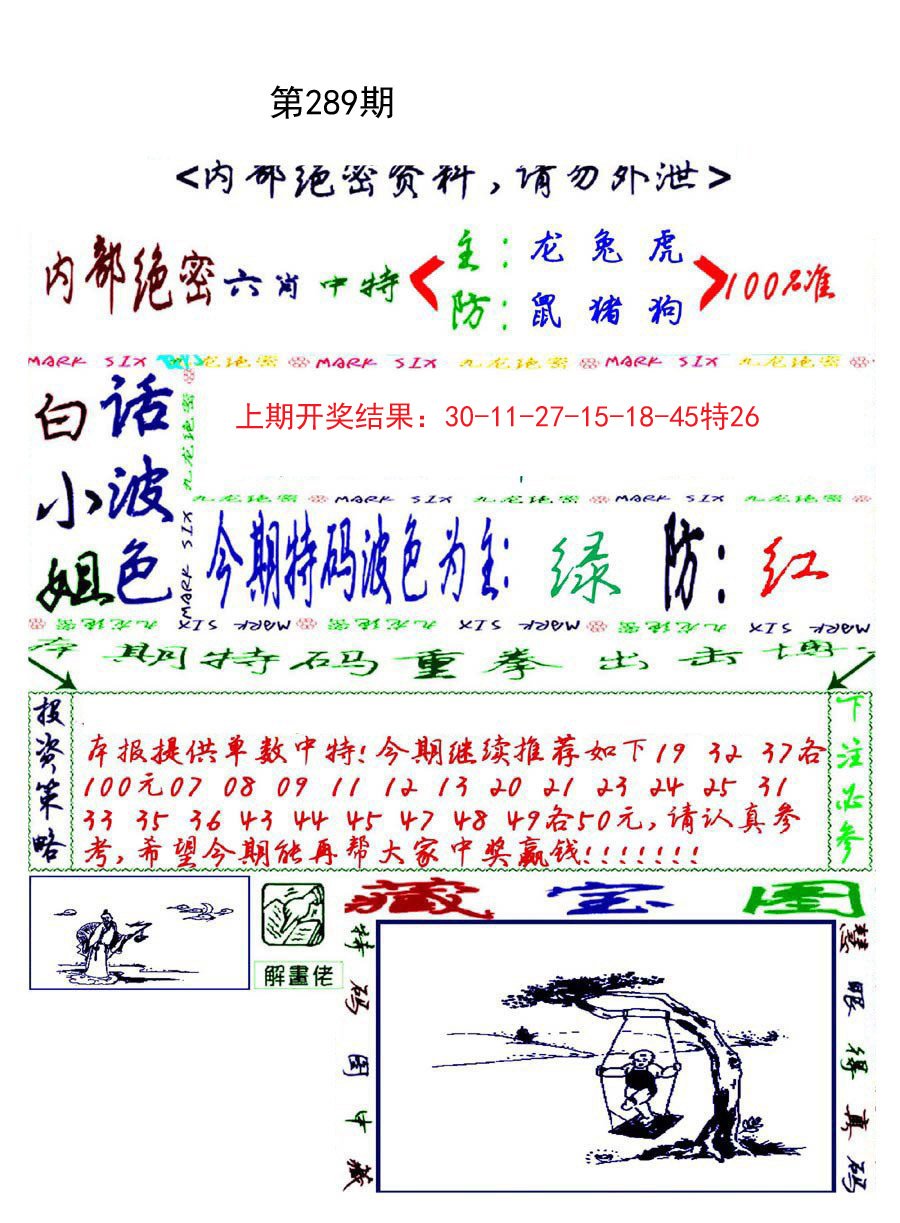 第289期
<内部绝密资料，请勿外泄>
内部绝密六肖中特
主：龙 兔 虎
防：鼠 猪 狗
100%准
MARK SIX 九龙绝密 MARK SIX 九龙绝密 MARK SIX 九龙绝密
白话
小波
姐色
九龙绝密
MARK SIX
上期开奖结果：30-11-27-15-18-45特26
九龙绝密 MARK SIX 九龙绝密 MARK SIX 九龙绝密
今期特码波色为主：绿 防：红
九龙绝密 MARK SIX 九龙绝密 MARK SIX 九龙绝密 MARK SIX
本期特码重拳出击博
投资策略
本报提供单数中特！今期继续推荐如下19 32 37各
100元07 08 09 11 12 13 20 21 23 24 25 31
33 35 36 43 44 45 47 48 49各50元，请认真参
考，希望今期能再帮大家中奖赢钱！！！！！！！
下注必参
解畫佬
藏宝图
特码图中藏
慧眼得真码